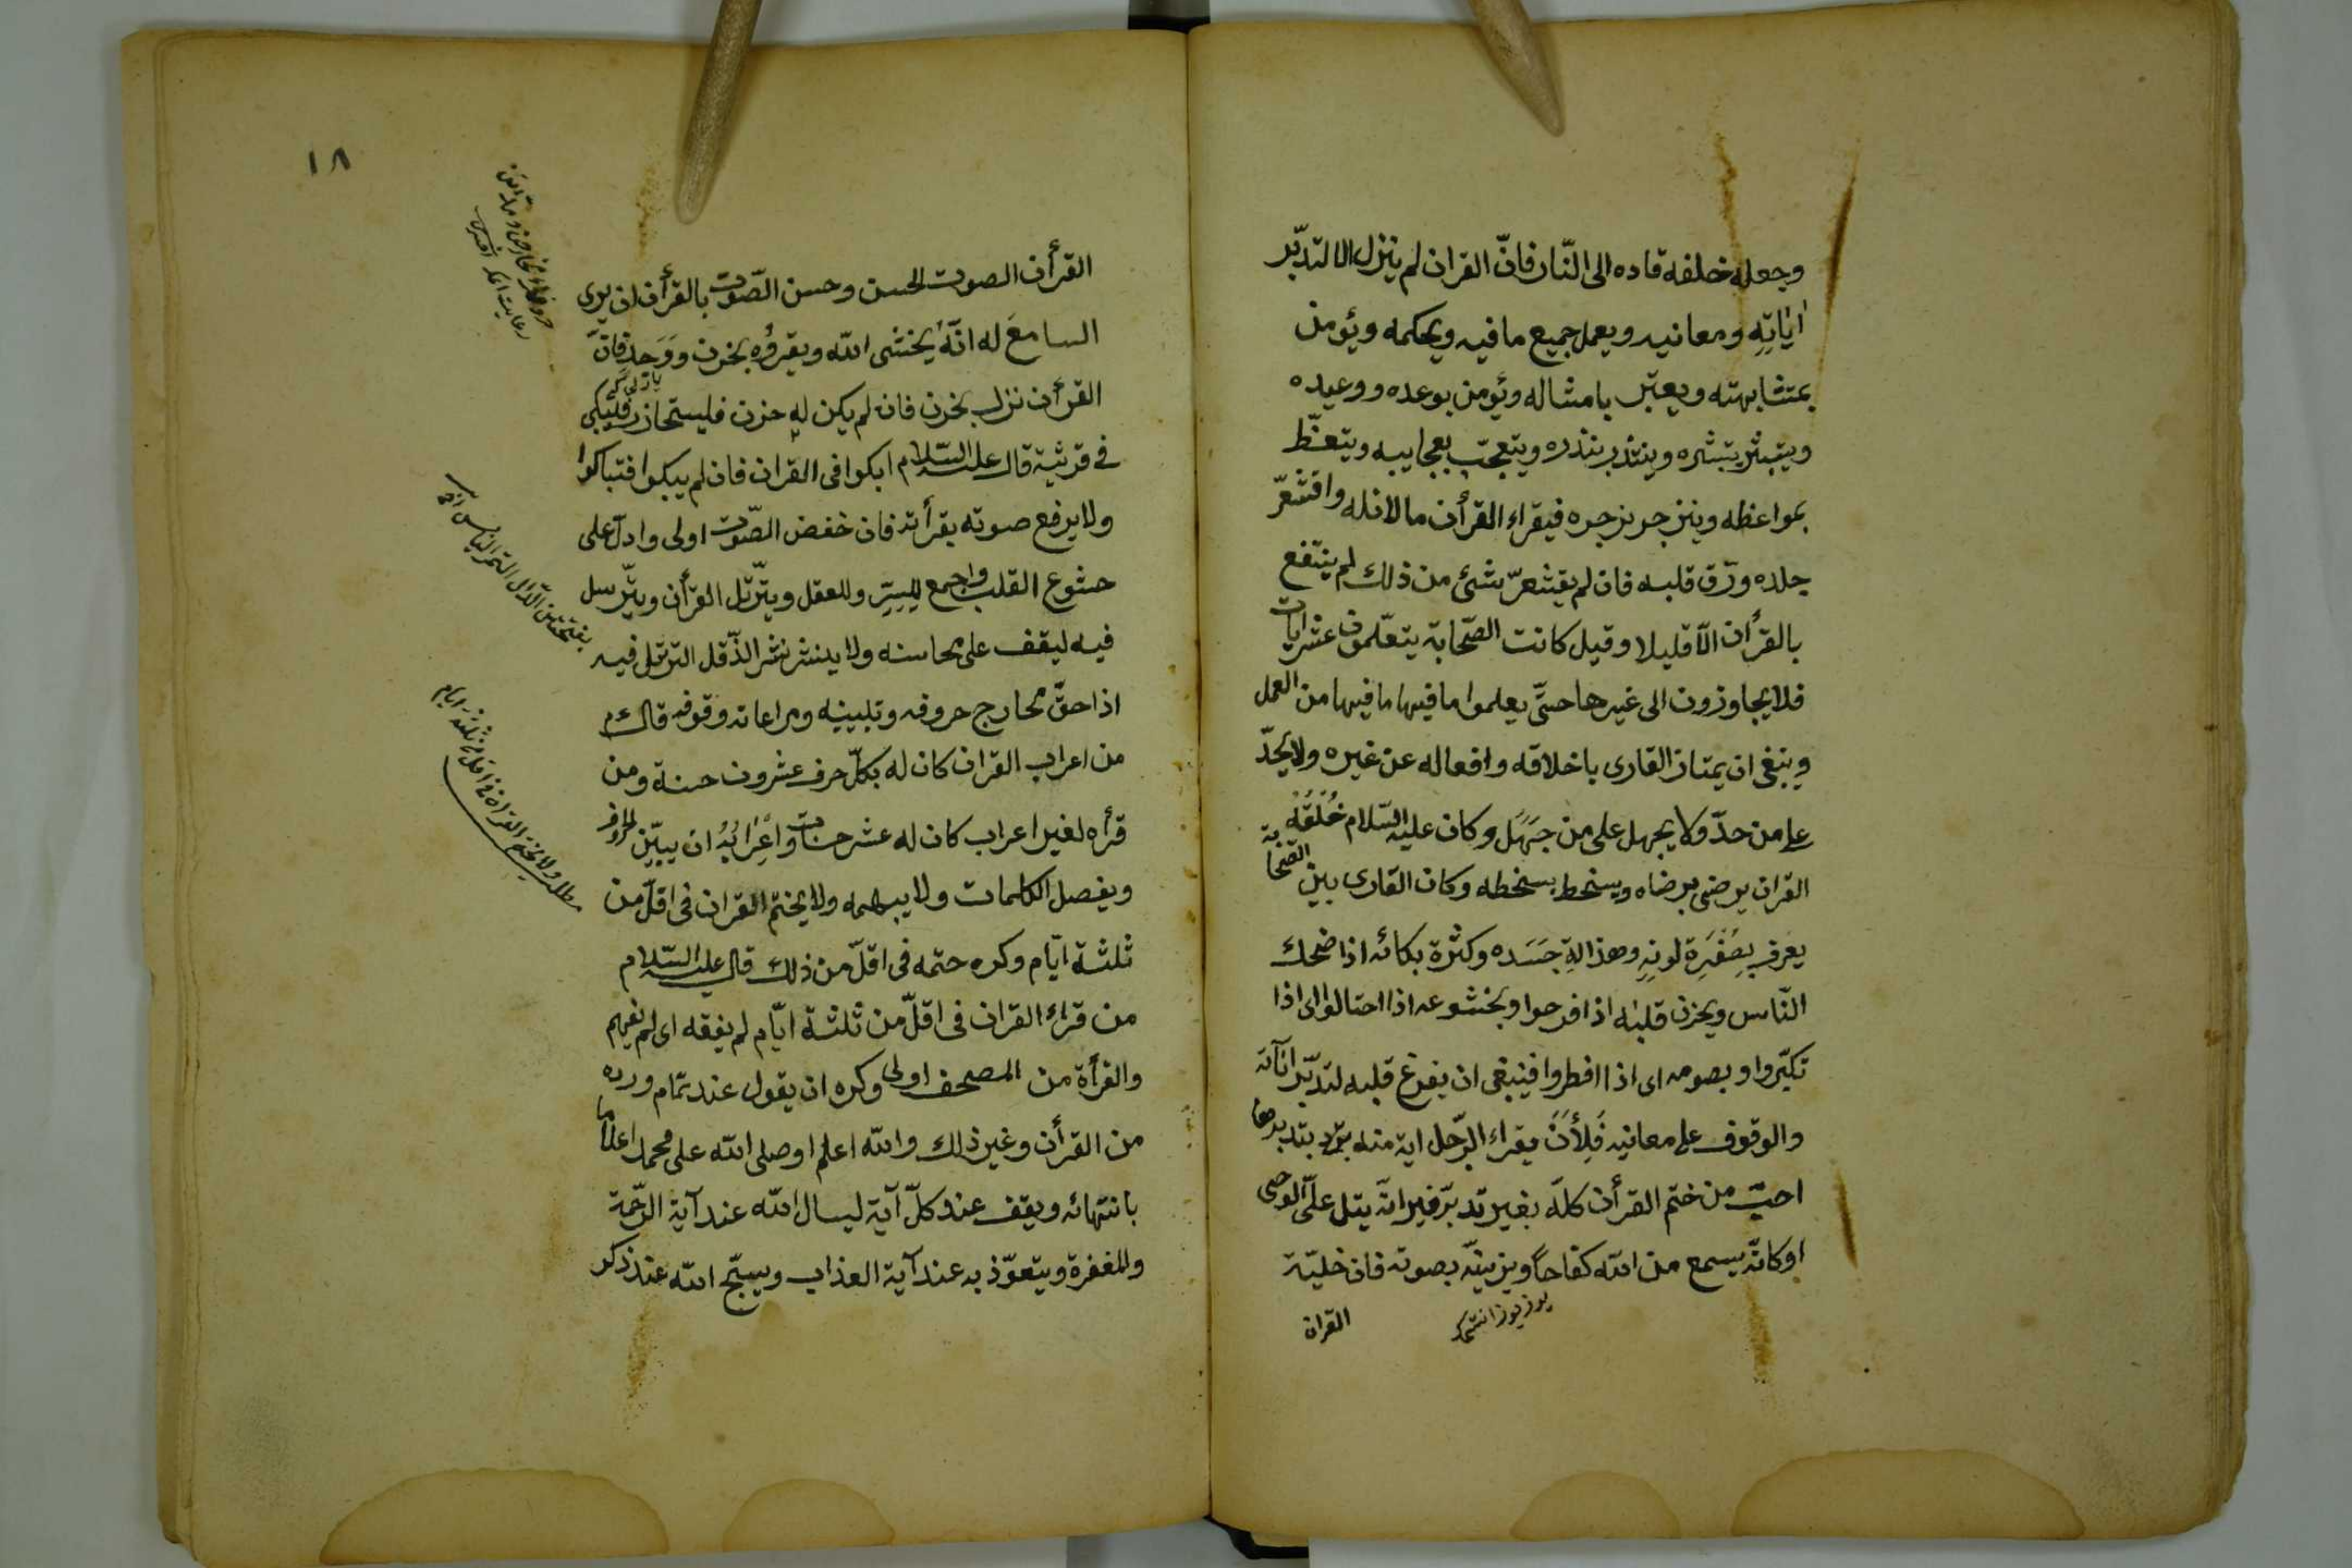 وجعله خلفه قاده الى النّار فانّ القران لم ينزل الا لتدبّر
اٰياتِهِ ومعانيه ويعمل جميع ما فيه ويحكمه ويؤمن
بمتشابهته ويعتبر بامثاله ويؤمن بوعده ووعيده
ويتبشّر بتبشره وينتذر بنذره ويتعجّب بعجايبه ويتعظ
بمواعظه وينزجر بزجره فيقراء القرأن ما لان له واقشعرّ
جلده ورّق قلبه فان لم يقشعرّ شئ من ذلك لم ينتفع
بالقرأن الّا قليلا وقيل كانت الصّحابة يتعلّمون عشر ايات
فلا يجاوزون الى غيرها حتّى يعلموا ما فيها ما فيها من العمل
وينبغى ان يمتاز القارى باخلاقه وافعاله عن غيره ولا يحدّ
على من حدّ ولا يجهل على من جَهَل وكان عليه السّلام خُلُقُهُ
القران يرضى برضاه ويسخط بسخطه وكان القارى بين الصّحابة
يعرف بِصُفْرَةِ لونِهِ وهذالةِ جَسَده وكثرة بكائه اذا ضحك
النّاس ويحزن قلبُه اذا فرحوا وبخشوعه اذا احتالوا اى اذا
تكبّروا وبصومه اى اذا افطروا فينبغى ان يفرغ قلبه لتدبّر اٰياته
والوقوف على معانيه فَلِأَنْ يقراء الرّجل اية منه بتدبرها
احبّ من ختم القرأن كلّه بغير تدبّر فيرانّه يتل علىّ الوحى
او كانّه يسمع من الله كفاحاً ويزيّنه بصوته فان خليّة
القران
القرأن الصوت الحسن وحسن الصّوت بالقرأن ان يرى
السامعَ له انّهُ يخشى الله ويقرؤه بحزن ووَجد فانَّ
القرأن نزل بحزن فان لم يكن له حزن فليستحازن وليتبكى
فى قرئية قال عليه السّلام ابكوا فى القران فان لم يبكوا فتباكوا
ولا يرفع صوته بقرأته فان خفض الصّوت اولى وادلّ على
حشوع القلب واجمع لِلسِّرِّ وللعقل ويترّتل القرأن ويترّسل
فيه ليقف على محاسنه ولا ينشر نشر الدّقل الترتّل فيه
اذا حقّ محارج حروفه وتبيينه ومراعاته وقوفه قال ءم
من اعراب القران كان له بكلّ حرف عشرون حسنة ومن
قرأه لغير اعراب كان له عشر حسنات واِعْرَابُهُ ان يبيّن الحروف
ويفصل الكلمات ولا يبهمه ولا يختم القران فى اقلّ من
ثلثة ايّام وكره حتمه فى اقلّ من ذلك قال عليه السّلام
من قراء القران فى اقلّ من ثلثة ايّام لم يفقه اى لم يفهم
والقرأة من المصحف اولى وكره ان يقول عند تمام ورده
من القرأن وغير ذلك والله اعلم او صلى الله على محمد اعلاما
بانتهائه ويقف عند كلّ آية ليسال الله عند آية الرّحمة
والمغفرة ويتعوّذ به عند آية العذاب ويسبّح الله عند ذكر
١٨
مطلب ولا يختم القران فى اقل من ثلثة ايام